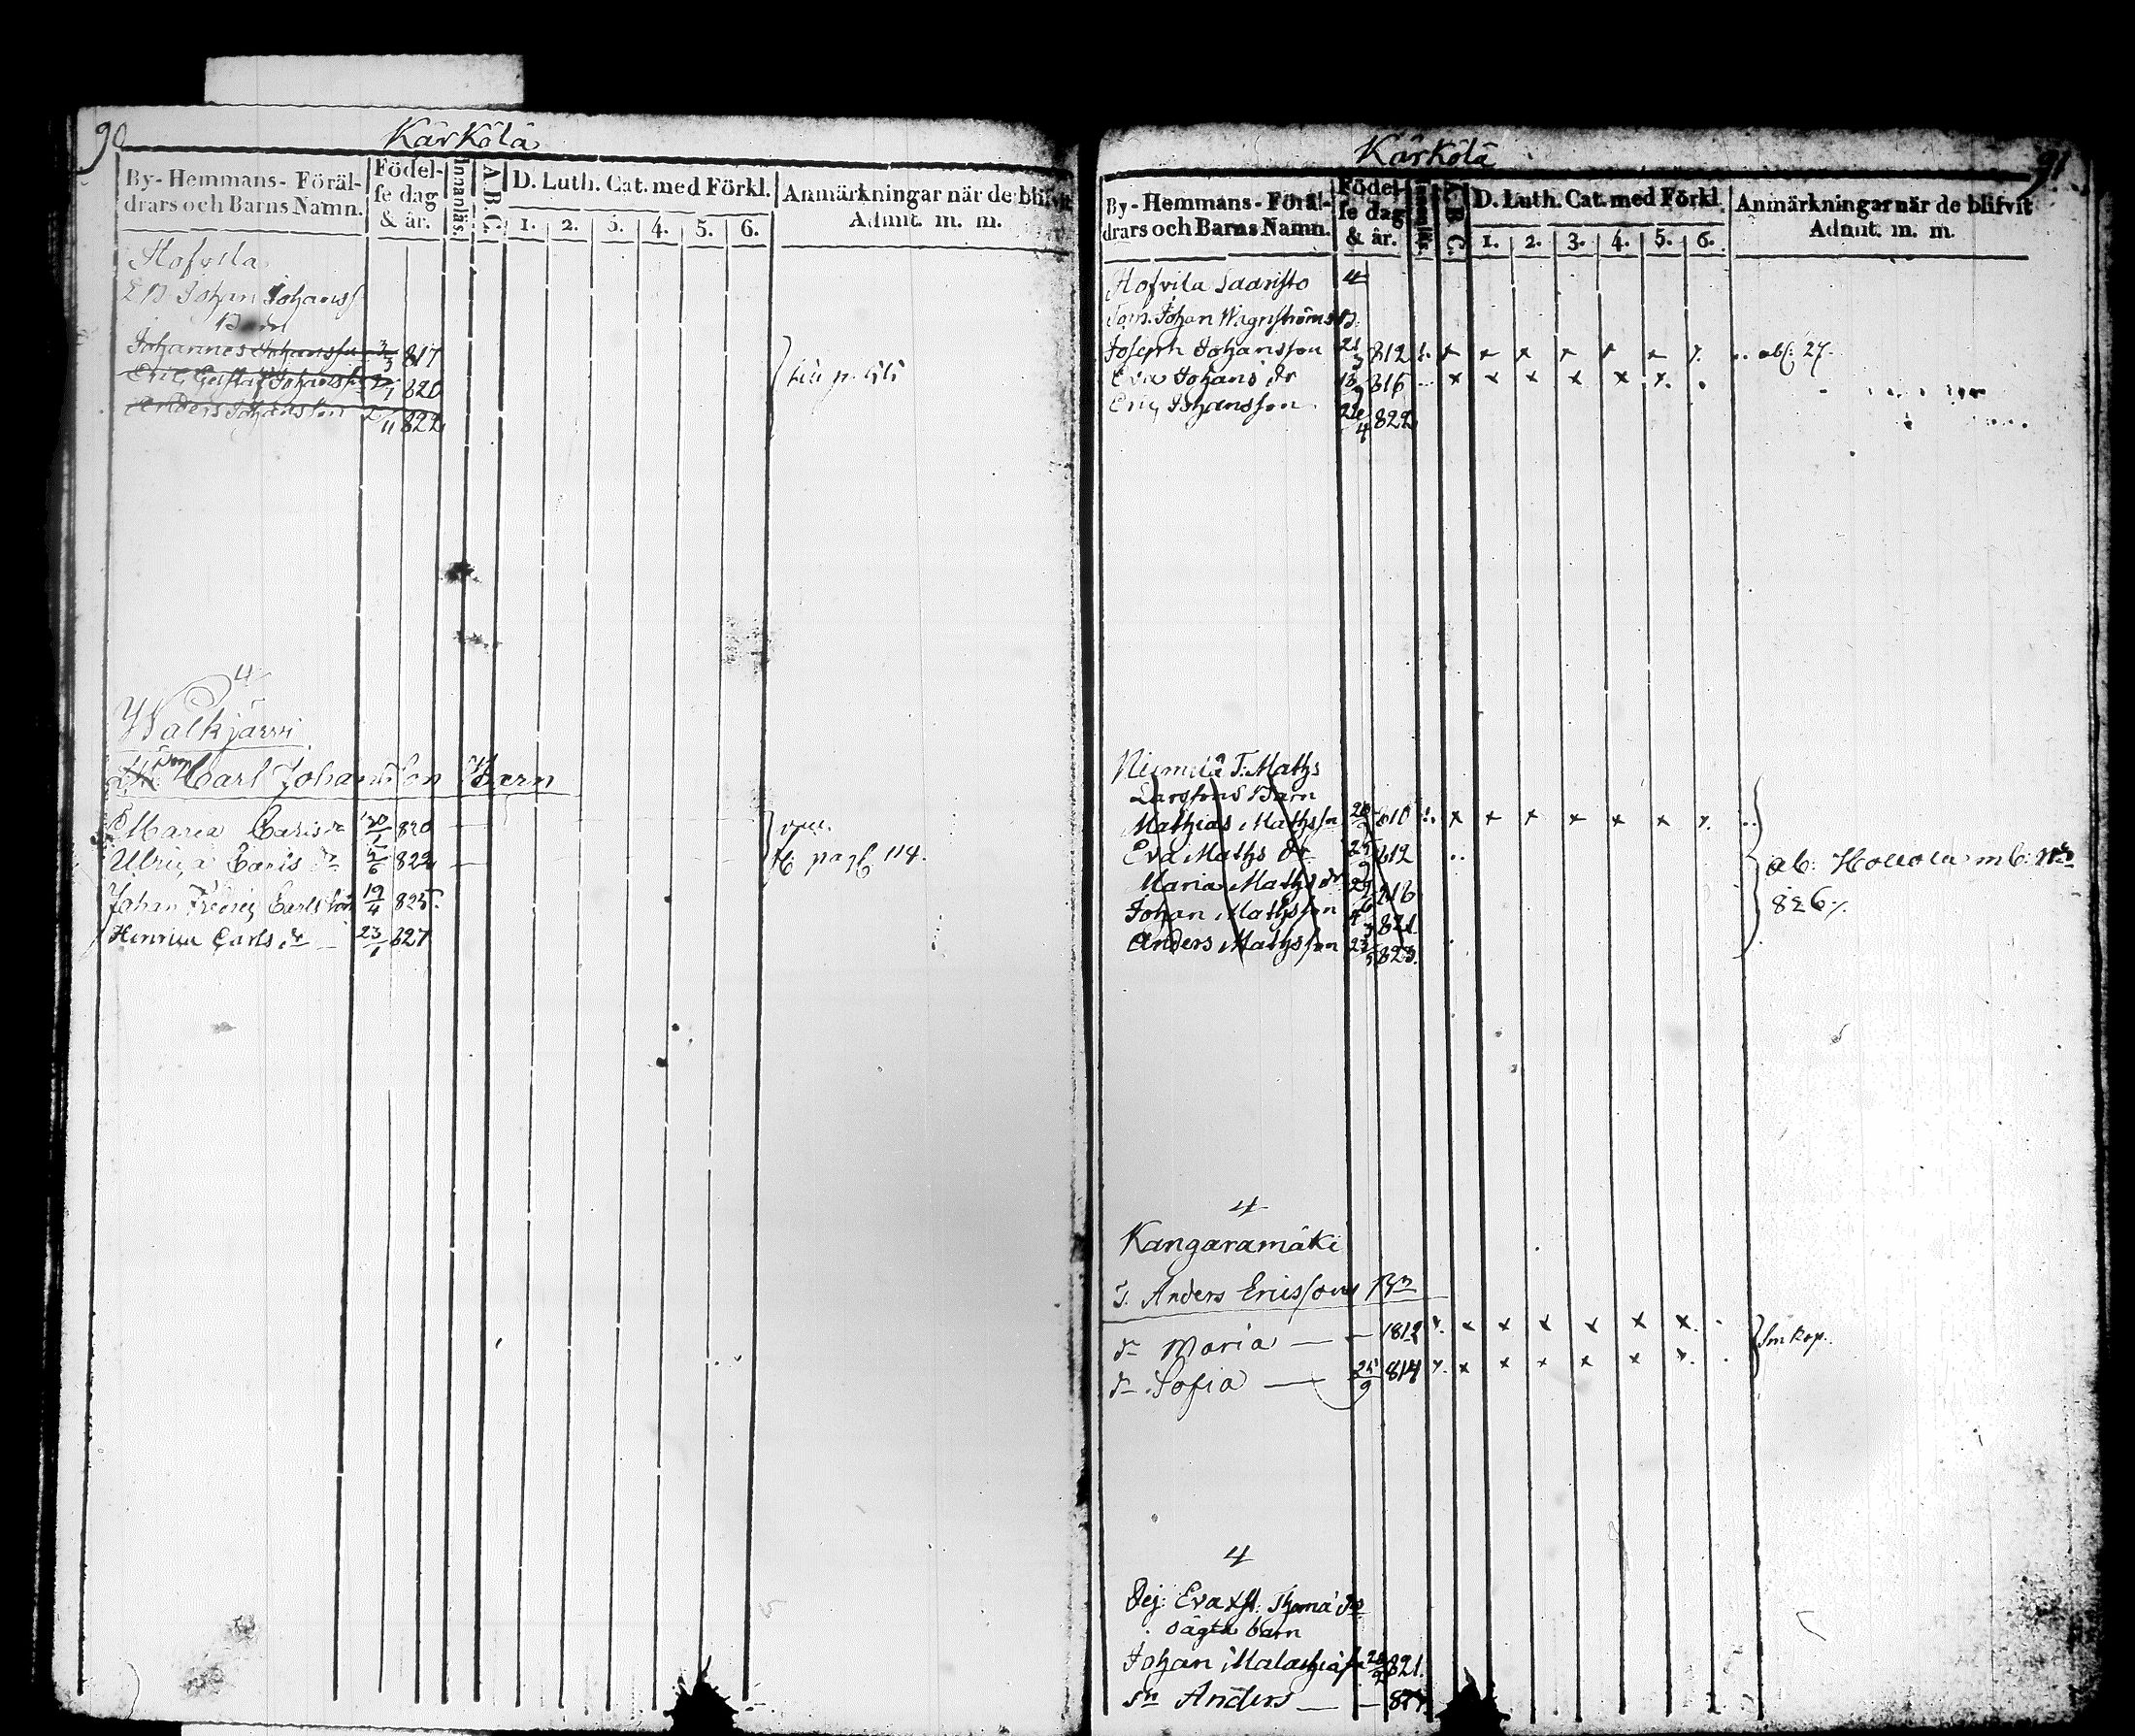 90
Kärkölä
By- Hemmans- Föräl-
drars och Barns Namn.
Födel-
se dag
& år.
Innanläs.
A. B. C.
D. Luth. Cat. med Förkl.
1. 2. 3. 4. 5. 6.
Anmärkningar när de blifvit
Admit. m. m.
Hofvila
Johan Johanss
Barn
Johannes Johansson 3/3 817
Eric Gustaf Johansson 820
Anders Johansson 11 822
4
Walkjärvi
Carl Johansson Barn
Maria Carls dr 820
Ulrica Carls dr 822
pag 114.
Johan Fredric Carlsson 19/4 825.
Henrica Carls dr 23/1 827
Kärkölä
91
By- Hemmans- Föräl-
drars och Barns Namn.
Födel-
se dag
& år.
Innanläs.
A. B. C.
D. Luth. Cat. med Förkl.
1. 2. 3. 4. 5. 6.
Anmärkningar när de blifvit
Admit. m. m.
Hofvila Saaristo 4
Johan Wagnströms B.
Joseph Johansson 21 812 x x x x x x abs. 27.
Eva Johans dr 13/9 816 x x x x x
Eric Johansson 24/4 822
Niemelä T: Maths
Larssons Barn
Mathias Mathsson 810 x x x x x x
Eva Maths dr 25/9 812
Maria Maths dr 29 816
Johan Mathsson 4/3 821
Anders Mathsson 23/5 823.
ab: Hollola mb:
826
4
Kangaramäki
T. Anders Ericssons Bn
dr Maria — — 1812 x x x x x x
dr Sofia — 25/9 814 x x x x x
4
Pej: Eva Thoma dr
oägta barn
Johan Malachias 821.
sn Anders — —